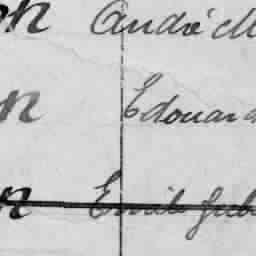 on André M
n Edouard
n Emile Jul